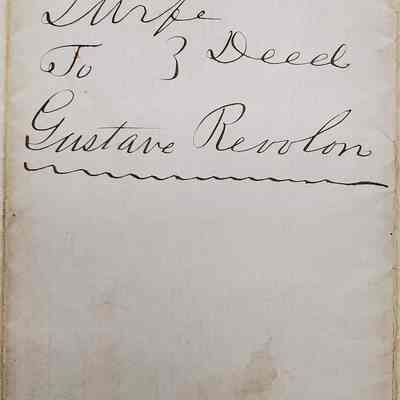 & Wife
To } Deed
Gustave Revolon